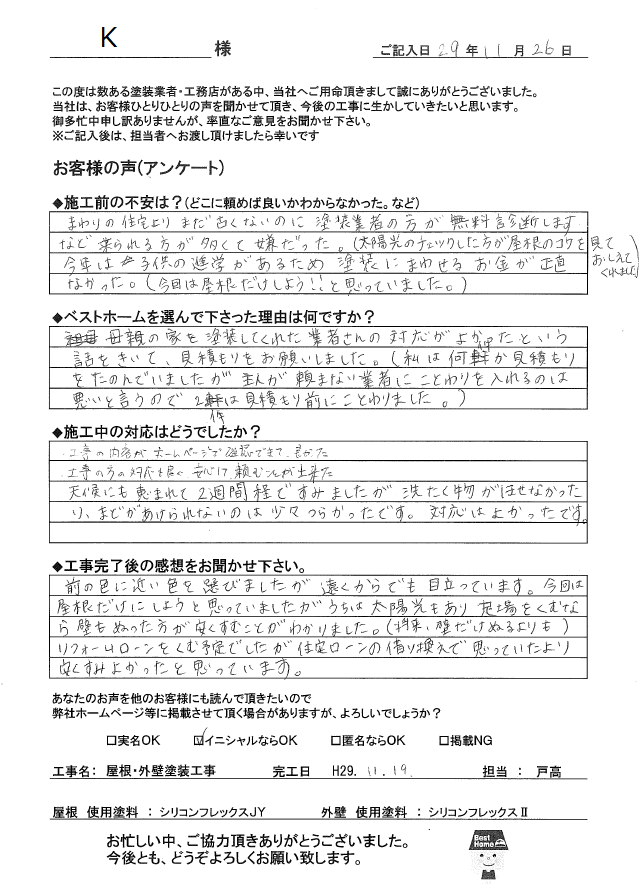 K 様 ご記入日 29 年 11 月 26 日
この度は数ある塗装業者・工務店がある中、当社へご用命頂きまして誠にありがとうございました。
当社は、お客様ひとりひとりの声を聞かせて頂き、今後の工事に生かしていきたいと思います。
御多忙中申し訳ありませんが、率直なご意見をお聞かせ下さい。
※ご記入後は、担当者へお渡し頂けましたら幸いです
お客様の声(アンケート)
◆施工前の不安は?(どこに頼めば良いかわからなかった。など)
まわりの住宅よりまだ古くないのに塗装業者の方が無料診断します
など来られる方が多くて嫌だった。(太陽光のチェックした方が屋根のコケを見て
おしえて
くれました)
今年は子供の進学があるため塗装にまわせるお金が正直
なかった。(今回は屋根だけしよう!!と思っていました。)
◆ベストホームを選んで下さった理由は何ですか?
母親の家を塗装してくれた業者さんの対応がよかったという
話をきいて、見積もりをお願いしました。(私は何件か見積もり
をたのんでいましたが主人が頼まない業者にことわりを入れるのは
悪いと言うので2件は見積もり前にことわりました。)
◆施工中の対応はどうでしたか?
・工事の内容がホームページで確認できて、良かった
・工事の方の対応も良く安心して頼むことが出来た
天候にも恵まれて2週間程ですみましたが洗たく物がほせなかった
り、まどがあけられないのは少々つらかったです。対応はよかったです。
◆工事完了後の感想をお聞かせ下さい。
前の色に近い色を選びましたが遠くからでも目立っています。今回は
屋根だけにしようと思っていましたがうちは太陽光もあり足場をくむな
ら壁もぬった方が安くすむことがわかりました。(将来、壁だけぬるよりも)
リフォームローンをくむ予定でしたが住宅ローンの借り換えで思っていたより
安くすみよかったと思っています。
あなたのお声を他のお客様にも読んで頂きたいので
弊社ホームページ等に掲載させて頂く場合がありますが、よろしいでしょうか?
□実名OK ☑イニシャルならOK □匿名ならOK □掲載NG
工事名: 屋根・外壁塗装工事 完工日 H29. 11. 19. 担当 : 戸高
屋根 使用塗料 : シリコンフレックスJY 外壁 使用塗料 : シリコンフレックスⅡ
お忙しい中、ご協力頂きありがとうございました。
今後とも、どうぞよろしくお願い致します。
Best
Home